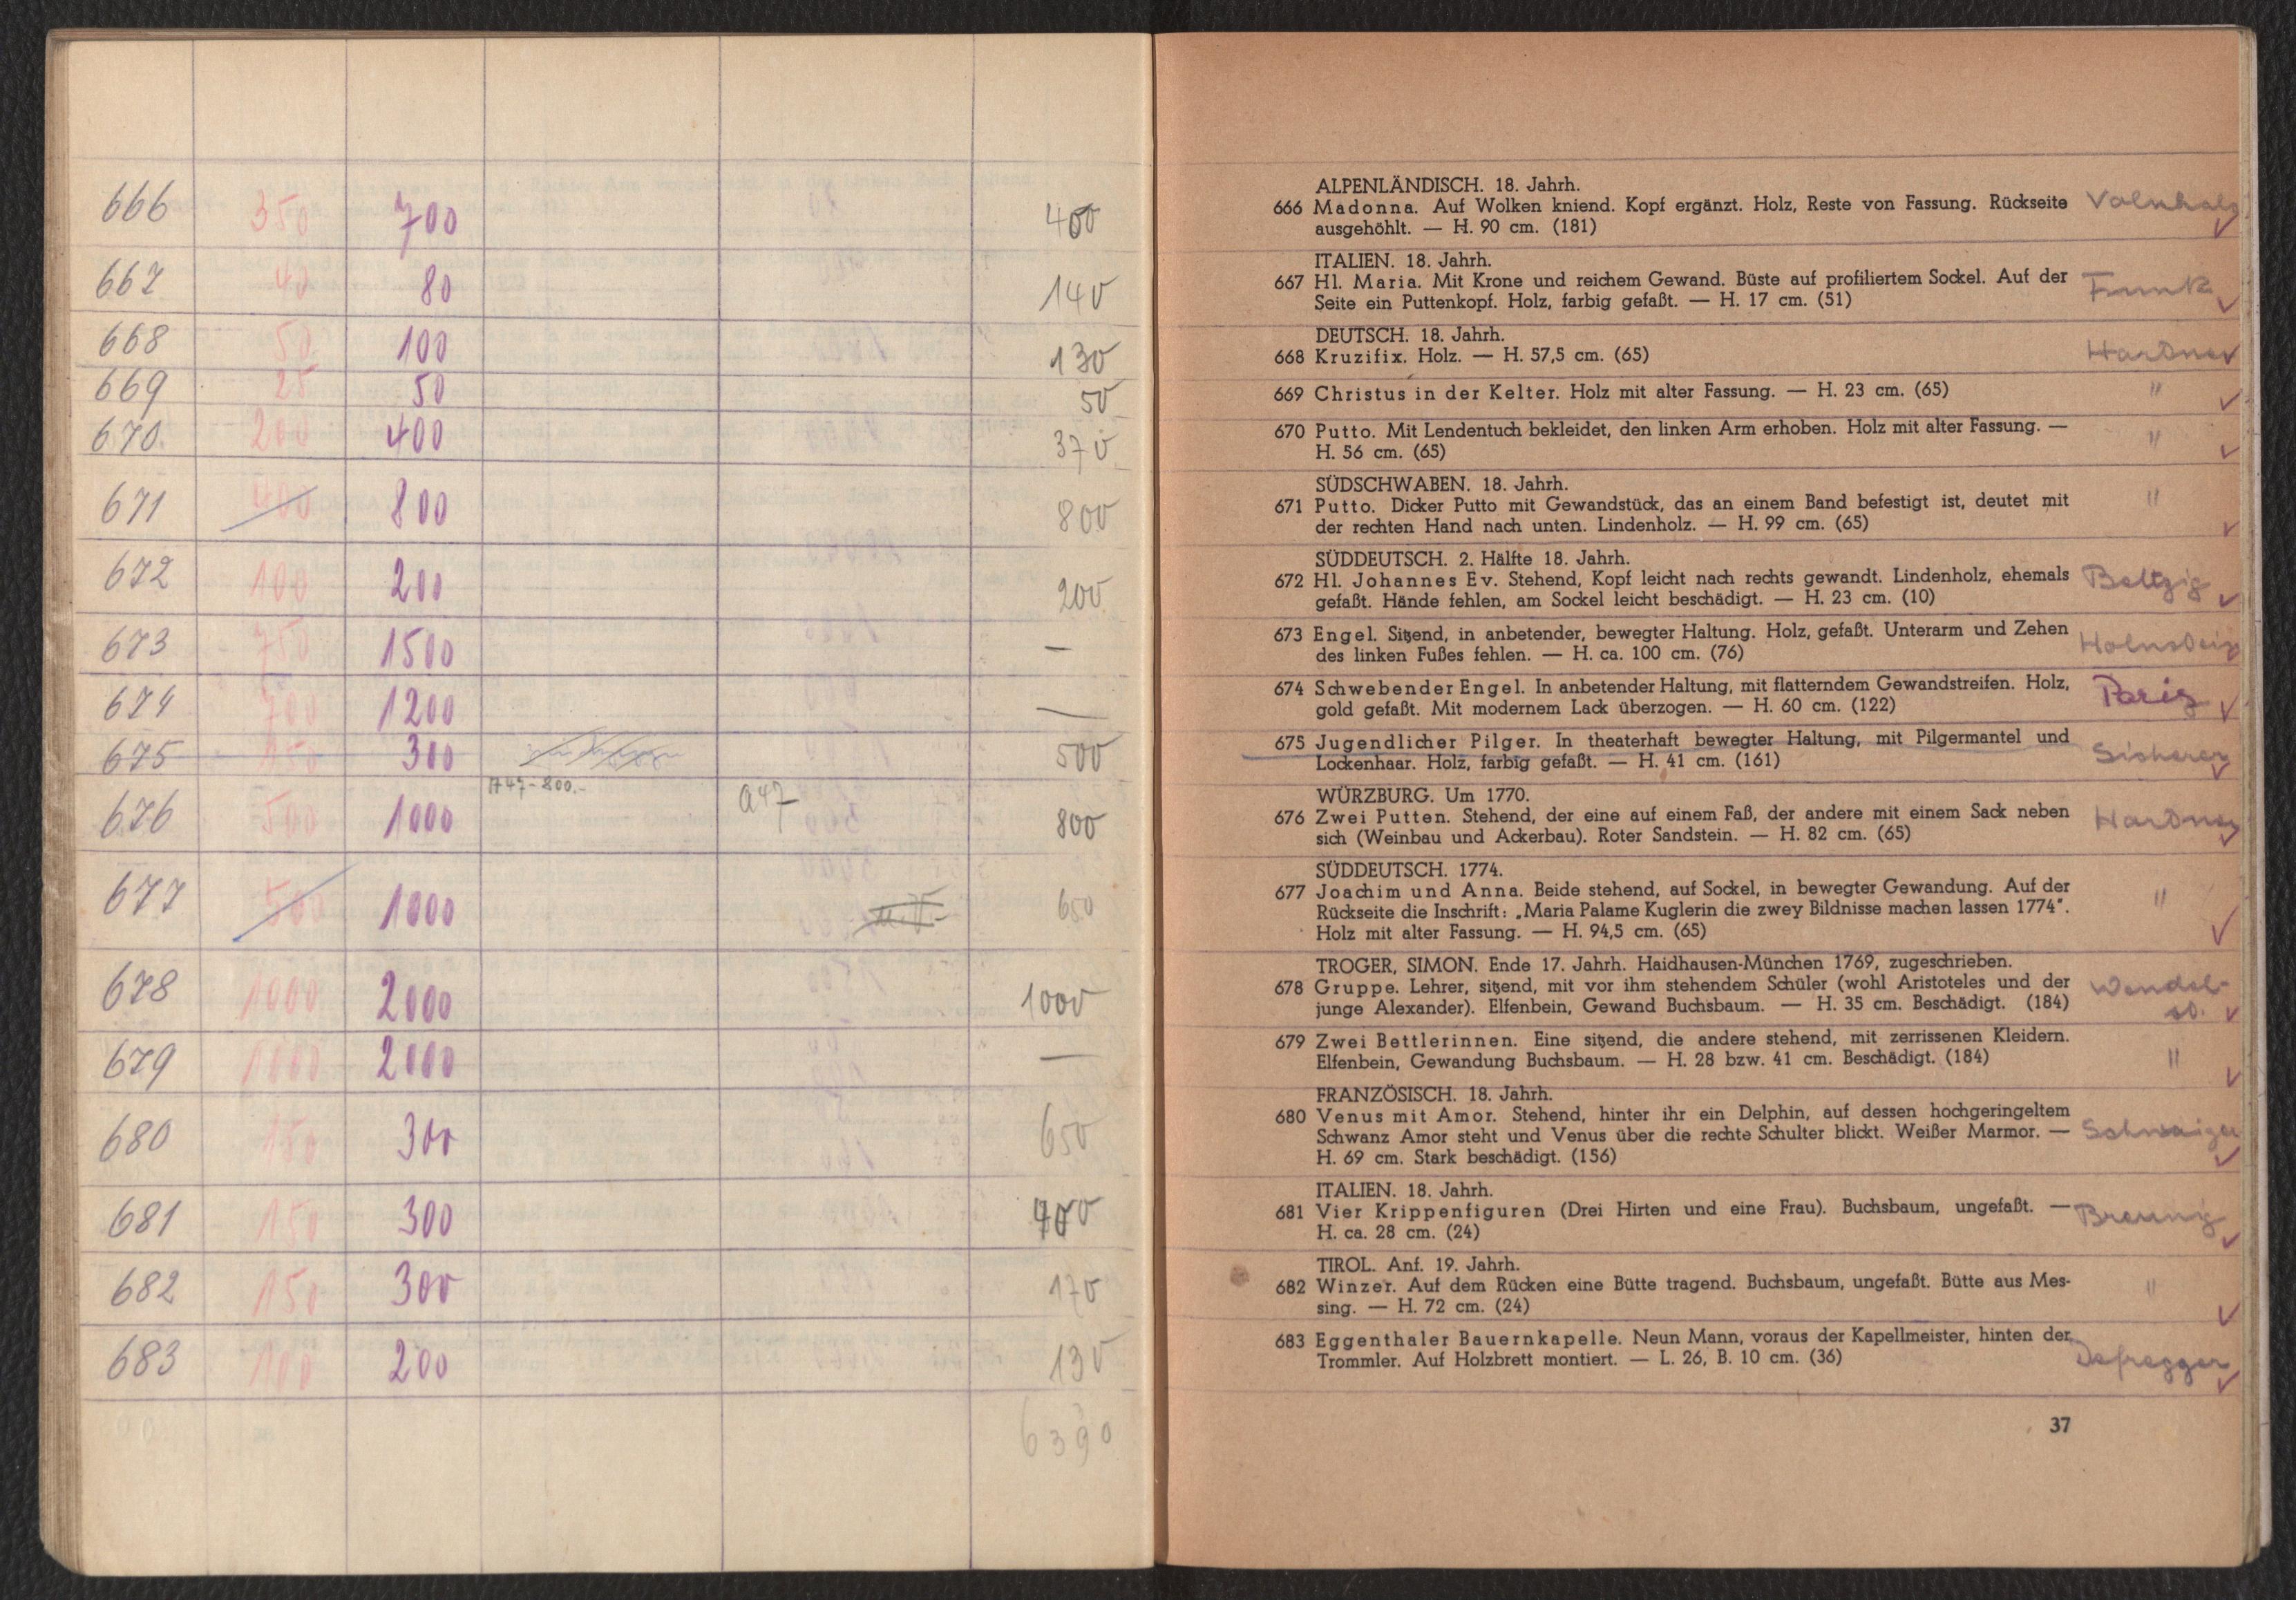 666 350 700 400
667 40 80 140
668 50 100 130
669 25 50 50
670 200 400 370
671 400 800 800
672 100 200 200
673 750 1500 —
674 700 1200 —
675 150 300 500
A 47 - 800.-
676 500 1000 a 47 800
677 500 1000 650
678 1000 2000 1000
679 1000 2000 —
680 150 300 650
681 150 300 400
682 150 300 170
683 100 200 130
6390
ALPENLÄNDISCH. 18. Jahrh.
666 Madonna. Auf Wolken kniend. Kopf ergänzt. Holz, Reste von Fassung. Rückseite
ausgehöhlt. — H. 90 cm. (181)
ITALIEN. 18. Jahrh.
667 Hl. Maria. Mit Krone und reichem Gewand. Büste auf profiliertem Sockel. Auf der Funk
Seite ein Puttenkopf. Holz, farbig gefaßt. — H. 17 cm. (51)
DEUTSCH. 18. Jahrh.
668 Kruzifix. Holz. — H. 57,5 cm. (65)
669 Christus in der Kelter. Holz mit alter Fassung. — H. 23 cm. (65) "
670 Putto. Mit Lendentuch bekleidet, den linken Arm erhoben. Holz mit alter Fassung. — "
H. 56 cm. (65)
SÜDSCHWABEN. 18. Jahrh.
671 Putto. Dicker Putto mit Gewandstück, das an einem Band befestigt ist, deutet mit "
der rechten Hand nach unten. Lindenholz. — H. 99 cm. (65)
SÜDDEUTSCH. 2. Hälfte 18. Jahrh.
672 Hl. Johannes Ev. Stehend, Kopf leicht nach rechts gewandt. Lindenholz, ehemals Beltzig
gefaßt. Hände fehlen, am Sockel leicht beschädigt. — H. 23 cm. (10)
673 Engel. Sitzend, in anbetender, bewegter Haltung. Holz, gefaßt. Unterarm und Zehen
des linken Fußes fehlen. — H. ca. 100 cm. (76)
674 Schwebender Engel. In anbetender Haltung, mit flatterndem Gewandstreifen. Holz,
gold gefaßt. Mit modernem Lack überzogen. — H. 60 cm. (122)
675 Jugendlicher Pilger. In theaterhaft bewegter Haltung, mit Pilgermantel und
Lockenhaar. Holz, farbig gefaßt. — H. 41 cm. (161)
WÜRZBURG. Um 1770.
676 Zwei Putten. Stehend, der eine auf einem Faß, der andere mit einem Sack neben
sich (Weinbau und Ackerbau). Roter Sandstein. — H. 82 cm. (65)
SÜDDEUTSCH. 1774.
677 Joachim und Anna. Beide stehend, auf Sockel, in bewegter Gewandung. Auf der "
Rückseite die Inschrift: „Maria Palame Kuglerin die zwey Bildnisse machen lassen 1774".
Holz mit alter Fassung. — H. 94,5 cm. (65)
TROGER, SIMON. Ende 17. Jahrh. Haidhausen-München 1769, zugeschrieben.
678 Gruppe. Lehrer, sitzend, mit vor ihm stehendem Schüler (wohl Aristoteles und der
junge Alexander). Elfenbein, Gewand Buchsbaum. — H. 35 cm. Beschädigt. (184)
679 Zwei Bettlerinnen. Eine sitzend, die andere stehend, mit zerrissenen Kleidern.
Elfenbein, Gewandung Buchsbaum. — H. 28 bzw. 41 cm. Beschädigt. (184) "
FRANZÖSISCH. 18. Jahrh.
680 Venus mit Amor. Stehend, hinter ihr ein Delphin, auf dessen hochgeringeltem
Schwanz Amor steht und Venus über die rechte Schulter blickt. Weißer Marmor. — Schwaiger
H. 69 cm. Stark beschädigt. (156)
ITALIEN. 18. Jahrh.
681 Vier Krippenfiguren (Drei Hirten und eine Frau). Buchsbaum, ungefaßt. —
H. ca. 28 cm. (24)
TIROL. Anf. 19. Jahrh.
682 Winzer. Auf dem Rücken eine Bütte tragend. Buchsbaum, ungefaßt. Bütte aus Mes- "
sing. — H. 72 cm. (24)
683 Eggenthaler Bauernkapelle. Neun Mann, voraus der Kapellmeister, hinten der
Trommler. Auf Holzbrett montiert. — L. 26, B. 10 cm. (36) Defregger
37